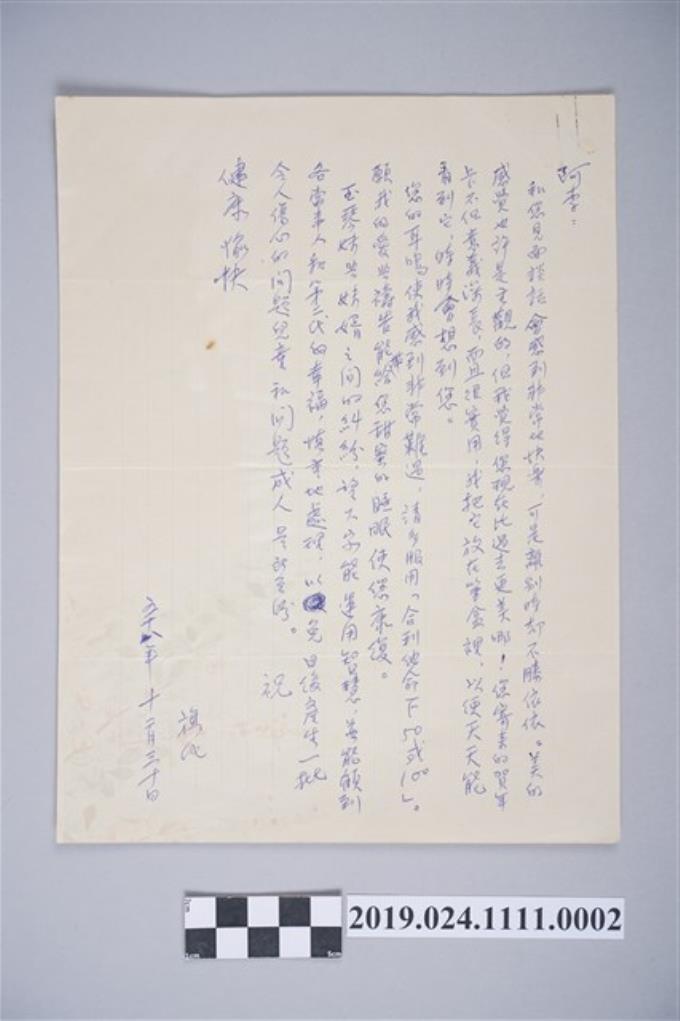 阿李：
和您見面談話會感到非常地快樂，可是離別時却不勝依依。美的
感覺也許是主觀的，但我覺得您現在比過去更美哪！您寄來的賀年
卡不但意義深長，而且很實用，我把它放在筆盒裡，以便天天能
看到它，時時會想到您。
您的耳鳴使我感到非常難過，請多服用「合利他命下50或100」。
願我的愛與禱告能給您甜蜜的睡眠使您康復。
玉琴妹與妹婿之間的糾紛，望大家能運用智慧，並能顧到
各當事人和第二代的幸福，慎重地處理，以免日後產生一批
令人傷心的問題兒童和問題成人是所至盼。 祝
健康愉快
五十八年十二月三十日
2019.024.1111.0002